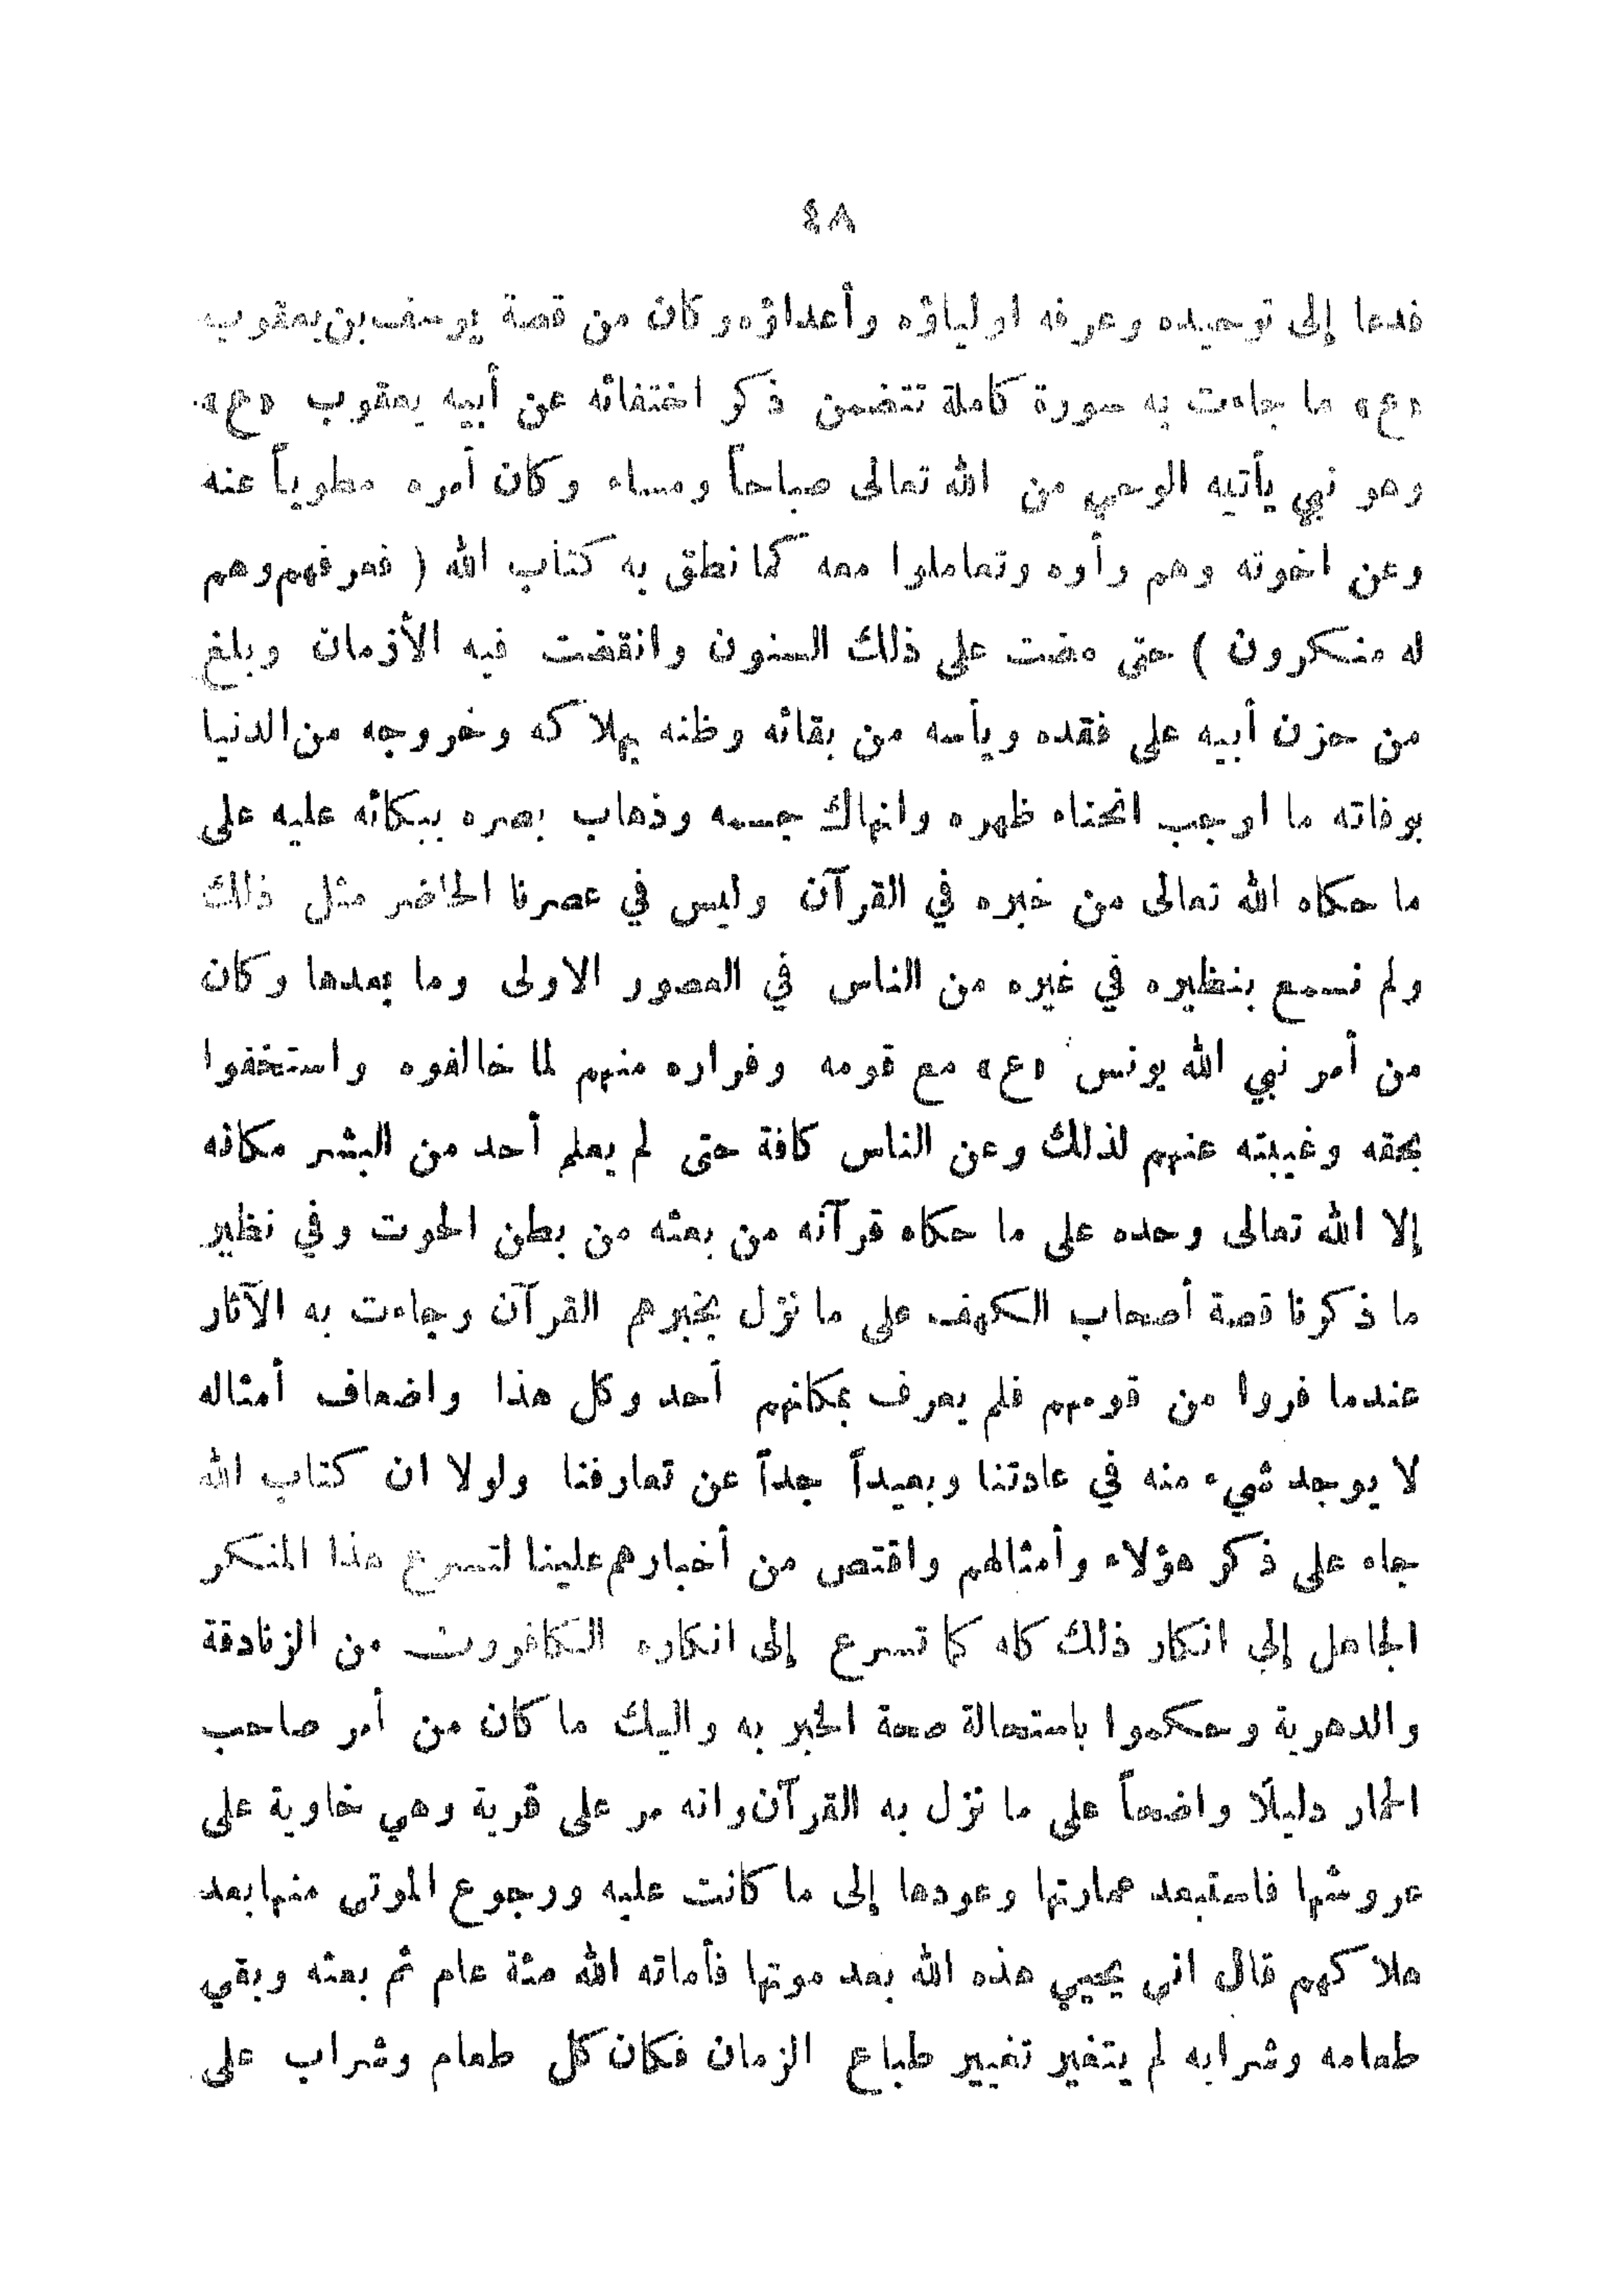 ٤٨
فدعا إلى توحيده وعرفه اولياؤه وأعداؤه وكان من قصة يوسف بن يعقوب
«ع» ما جاءت به سورة كاملة تتضمن ذكر اختفائه عن أبيه يعقوب «ع»
وهو نبي يأتيه الوحي من الله تعالى صباحاً ومساء وكان أمره مطوياً عنه
وعن اخوته وهم رأوه وتعاملوا معه كما نطق به كتاب الله ( فعرفهم وهم
له منكرون ) حتى مضت على ذلك السنون وانقضت فيه الأزمان وبلغ
من حزن أبيه على فقده ويأسه من بقائه وظنه بهلاكه وخروجه من الدنيا
بوفاته ما اوجب انحناء ظهره وانهاك جسمه وذهاب بصره ببكائه عليه على
ما حكاه الله تعالى من خبره في القرآن وليس في عصرنا الحاضر مثل ذلك
ولم نسمع بنظيره في غيره من الناس في العصور الاولى وما بعدها وكان
من أمر نبي الله يونس «ع» مع قومه وفراره منهم لما خالفوه واستخفوا
بحقه وغيبته عنهم لذلك وعن الناس كافة حتى لم يعلم أحد من البشر مكانه
إلا الله تعالى وحده على ما حكاه قرآنه من بعثه من بطن الحوت وفي نظير
ما ذكرنا قصة أصحاب الكهف على ما نزل بخبرهم القرآن وجاءت به الآثار
عندما فروا من قومهم فلم يعرف بمكانهم أحد وكل هذا واضعاف أمثاله
لا يوجد شيء منه في عادتنا وبعيداً جداً عن تعارفنا ولولا ان كتاب الله
جاء على ذكر هؤلاء وأمثالهم واقتص من أخبارهم علينا لتسرع هذا المنكر
الجاهل إلى انكار ذلك كله كما تسرع إلى انكاره الكافرون من الزنادقة
والدهرية وحكموا باستحالة صحة الخبر به واليك ما كان من أمر صاحب
الحمار دليلا واضحاً على ما نزل به القرآن وانه مر على قرية وهي خاوية على
عروشها فاستبعد عمارتها وعودها إلى ما كانت عليه ورجوع الموتى منها بعد
هلاكهم قال انى يحيي هذه الله بعد موتها فأماته الله مئة عام ثم بعثه وبقي
طعامه وشرابه لم يتغير تغيير طباع الزمان فكان كل طعام وشراب على